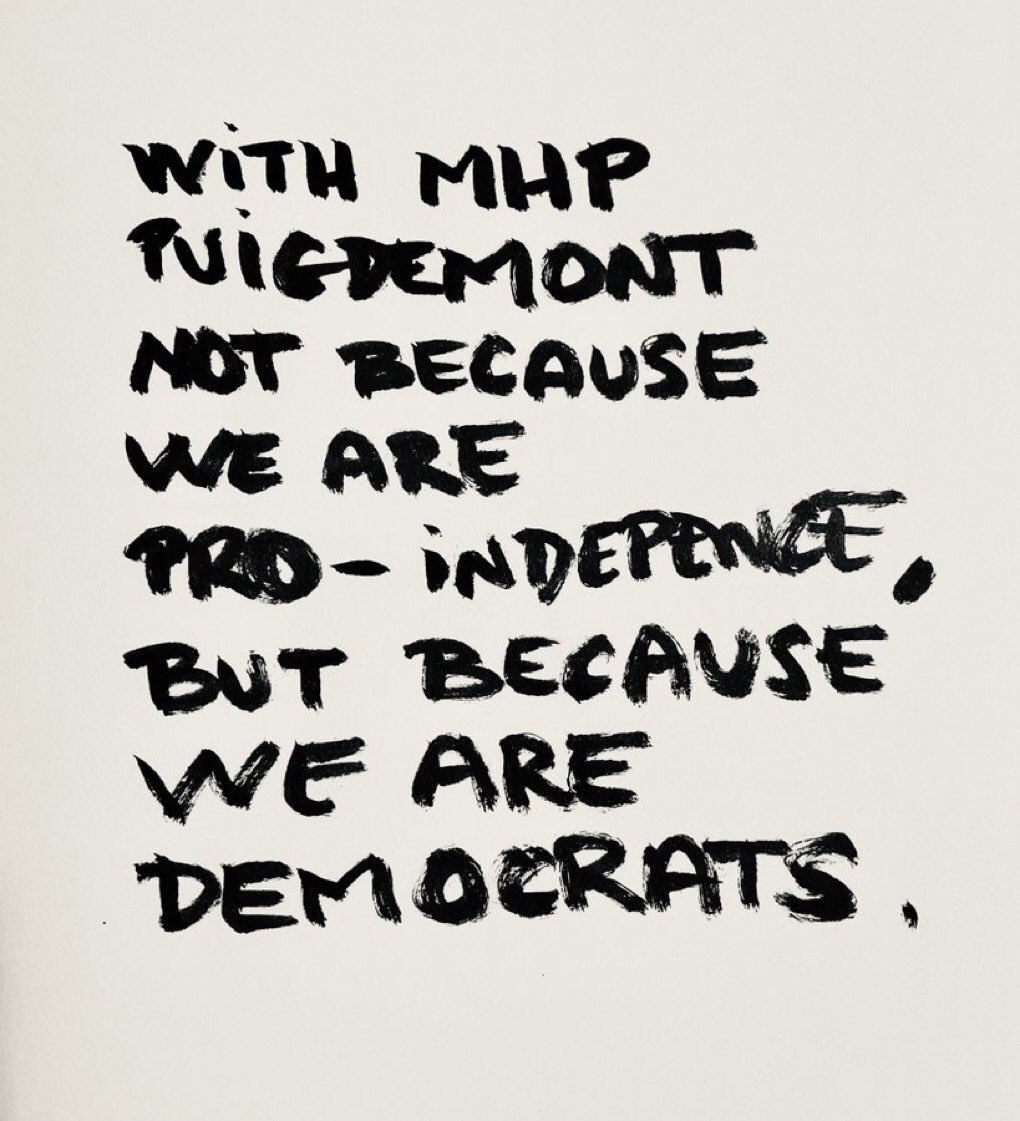 WiTH MHP
PUiGDEMONT
NOT BECAUSE
WE ARE
PRO-iNDEPENCE,
BUT BECAUSE
WE ARE
DEMOCRATS.